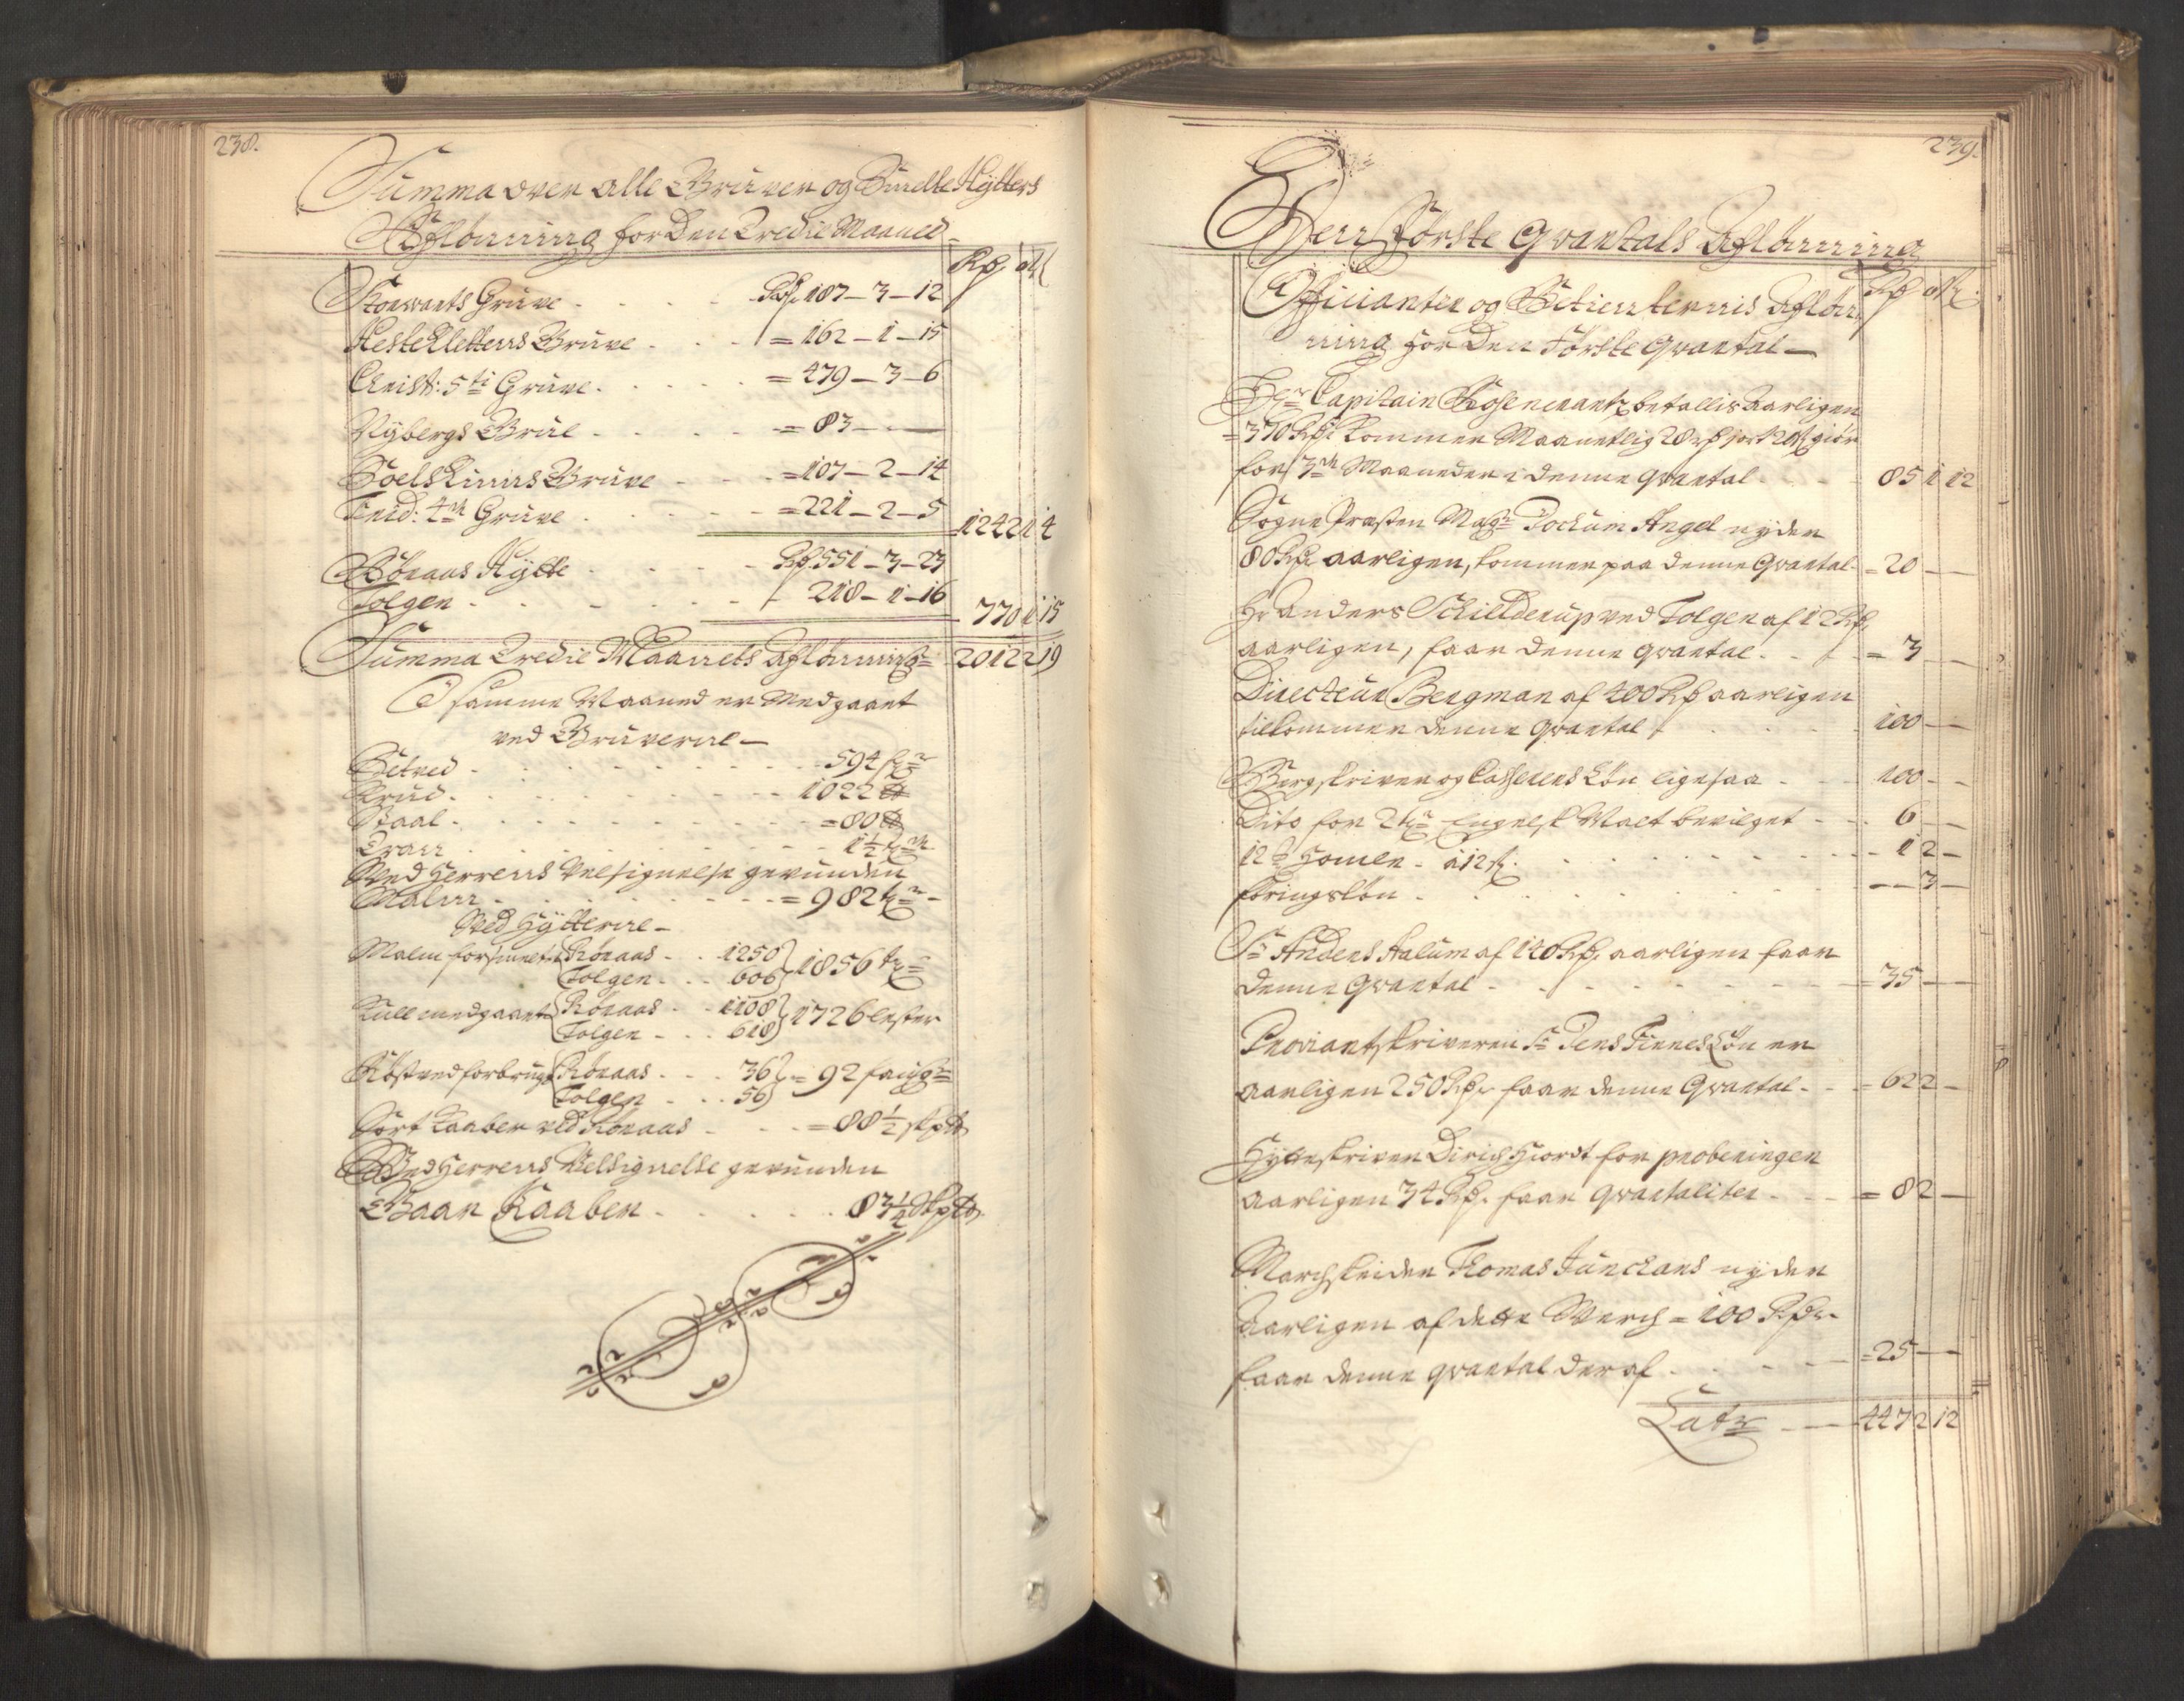 238.
Summa over alle Gruver og Smelte Hytters
Aflønning for Den Tredie Maaned
Rd ort
Storwarts Gruve - - - Rd. 187 - 3 - 12
Hestekletters Gruve - - - = 162 - 1 - 15
Christ: 5ti Gruve - - - = 479 - 3 - 6
Nybergs Gruve - - - = 83 - -
Soelskinns Gruve - - - = 107 - 2 - 14
Frid: 4te Gruve - - - = 221 - 2 - 5
1242 1 4
Røraas Hytte - - - Rd. 551 - 3 - 23
Tolgen - - - 218 - 1 - 16
770 1 15
Summa Tredie Maanets Aflønning = 2012 2 19
I samme Maaned er Medgaaet
ved Gruverne
Setved - - - 594 f
Krud - - - 1022 ℔
Staal - - - = 80 ℔
Tran - - - 1½ t
Ved Herrens Velsignelse gevunden
Malm - - - = 982 t
Ved Hytterne
Malm forsmelt Røraas - - 1250
Tolgen - - 606 1856 t
Kull medgaaet Røraas - - 1108
Tolgen - - 618 1726 lester
Røstved forbrugt Røraas - - 36
Tolgen - - 56 = 92 faugr
Sort Kaaber ved Røraas - - - = 88½ skp℔
Ved Herrens Velsignelse gevunden
Gaar Kaaber - - - 83¼ Skp℔
239.
Herr Første Qvartals Aflønning
Rd ort
Officianter og Betienternis Afløn
ning for Den Første Qvartal
Hr Capitain Rosencrantz betallis Aarligen
= 370 Rd kommer Maanetlig 28 rd giør
for 3de Maaneder i denne Qvartal - - 85 1 12
Sogne Præsten Magr Jochum Angel nyder
80 Rd aarligen, kommer paa denne Qvartal = 20 -
Hr Anders Schielderup ved Tolgen af 12 Rd
aarligen, faar denne qvartal - - = 3 -
Directeur Bergman af 400 Rd aarligen
tilkommer denne Qvartal - - 100 -
Bergskriver og Casserers Løn ligesaa - - 100 -
Dito for 2 tr Engelsk Malt bevilget - - 6
12 ℔ Homle - a 12 s - - 1 2 -
Føringsløn - - 3 -
Sr Anders Aalum af 140 Rd aarligen faar
denne Qvartal - - = 35 -
Proviantskriveren Sr Jens Finnes Løn er
aarligen 250 Rd faar denne Qvartal - = 62 2 -
Hytteskriver Dirich Hiordt for proberingen
aarligen 34 Rd faar qvartaliter - - = 8 2 -
Marchskeider Thomas Junchans nyder
Aarligen af dette Werch = 100 Rd
faar denne qvartal deraf - - = 25 -
Latr - - 447 2 12